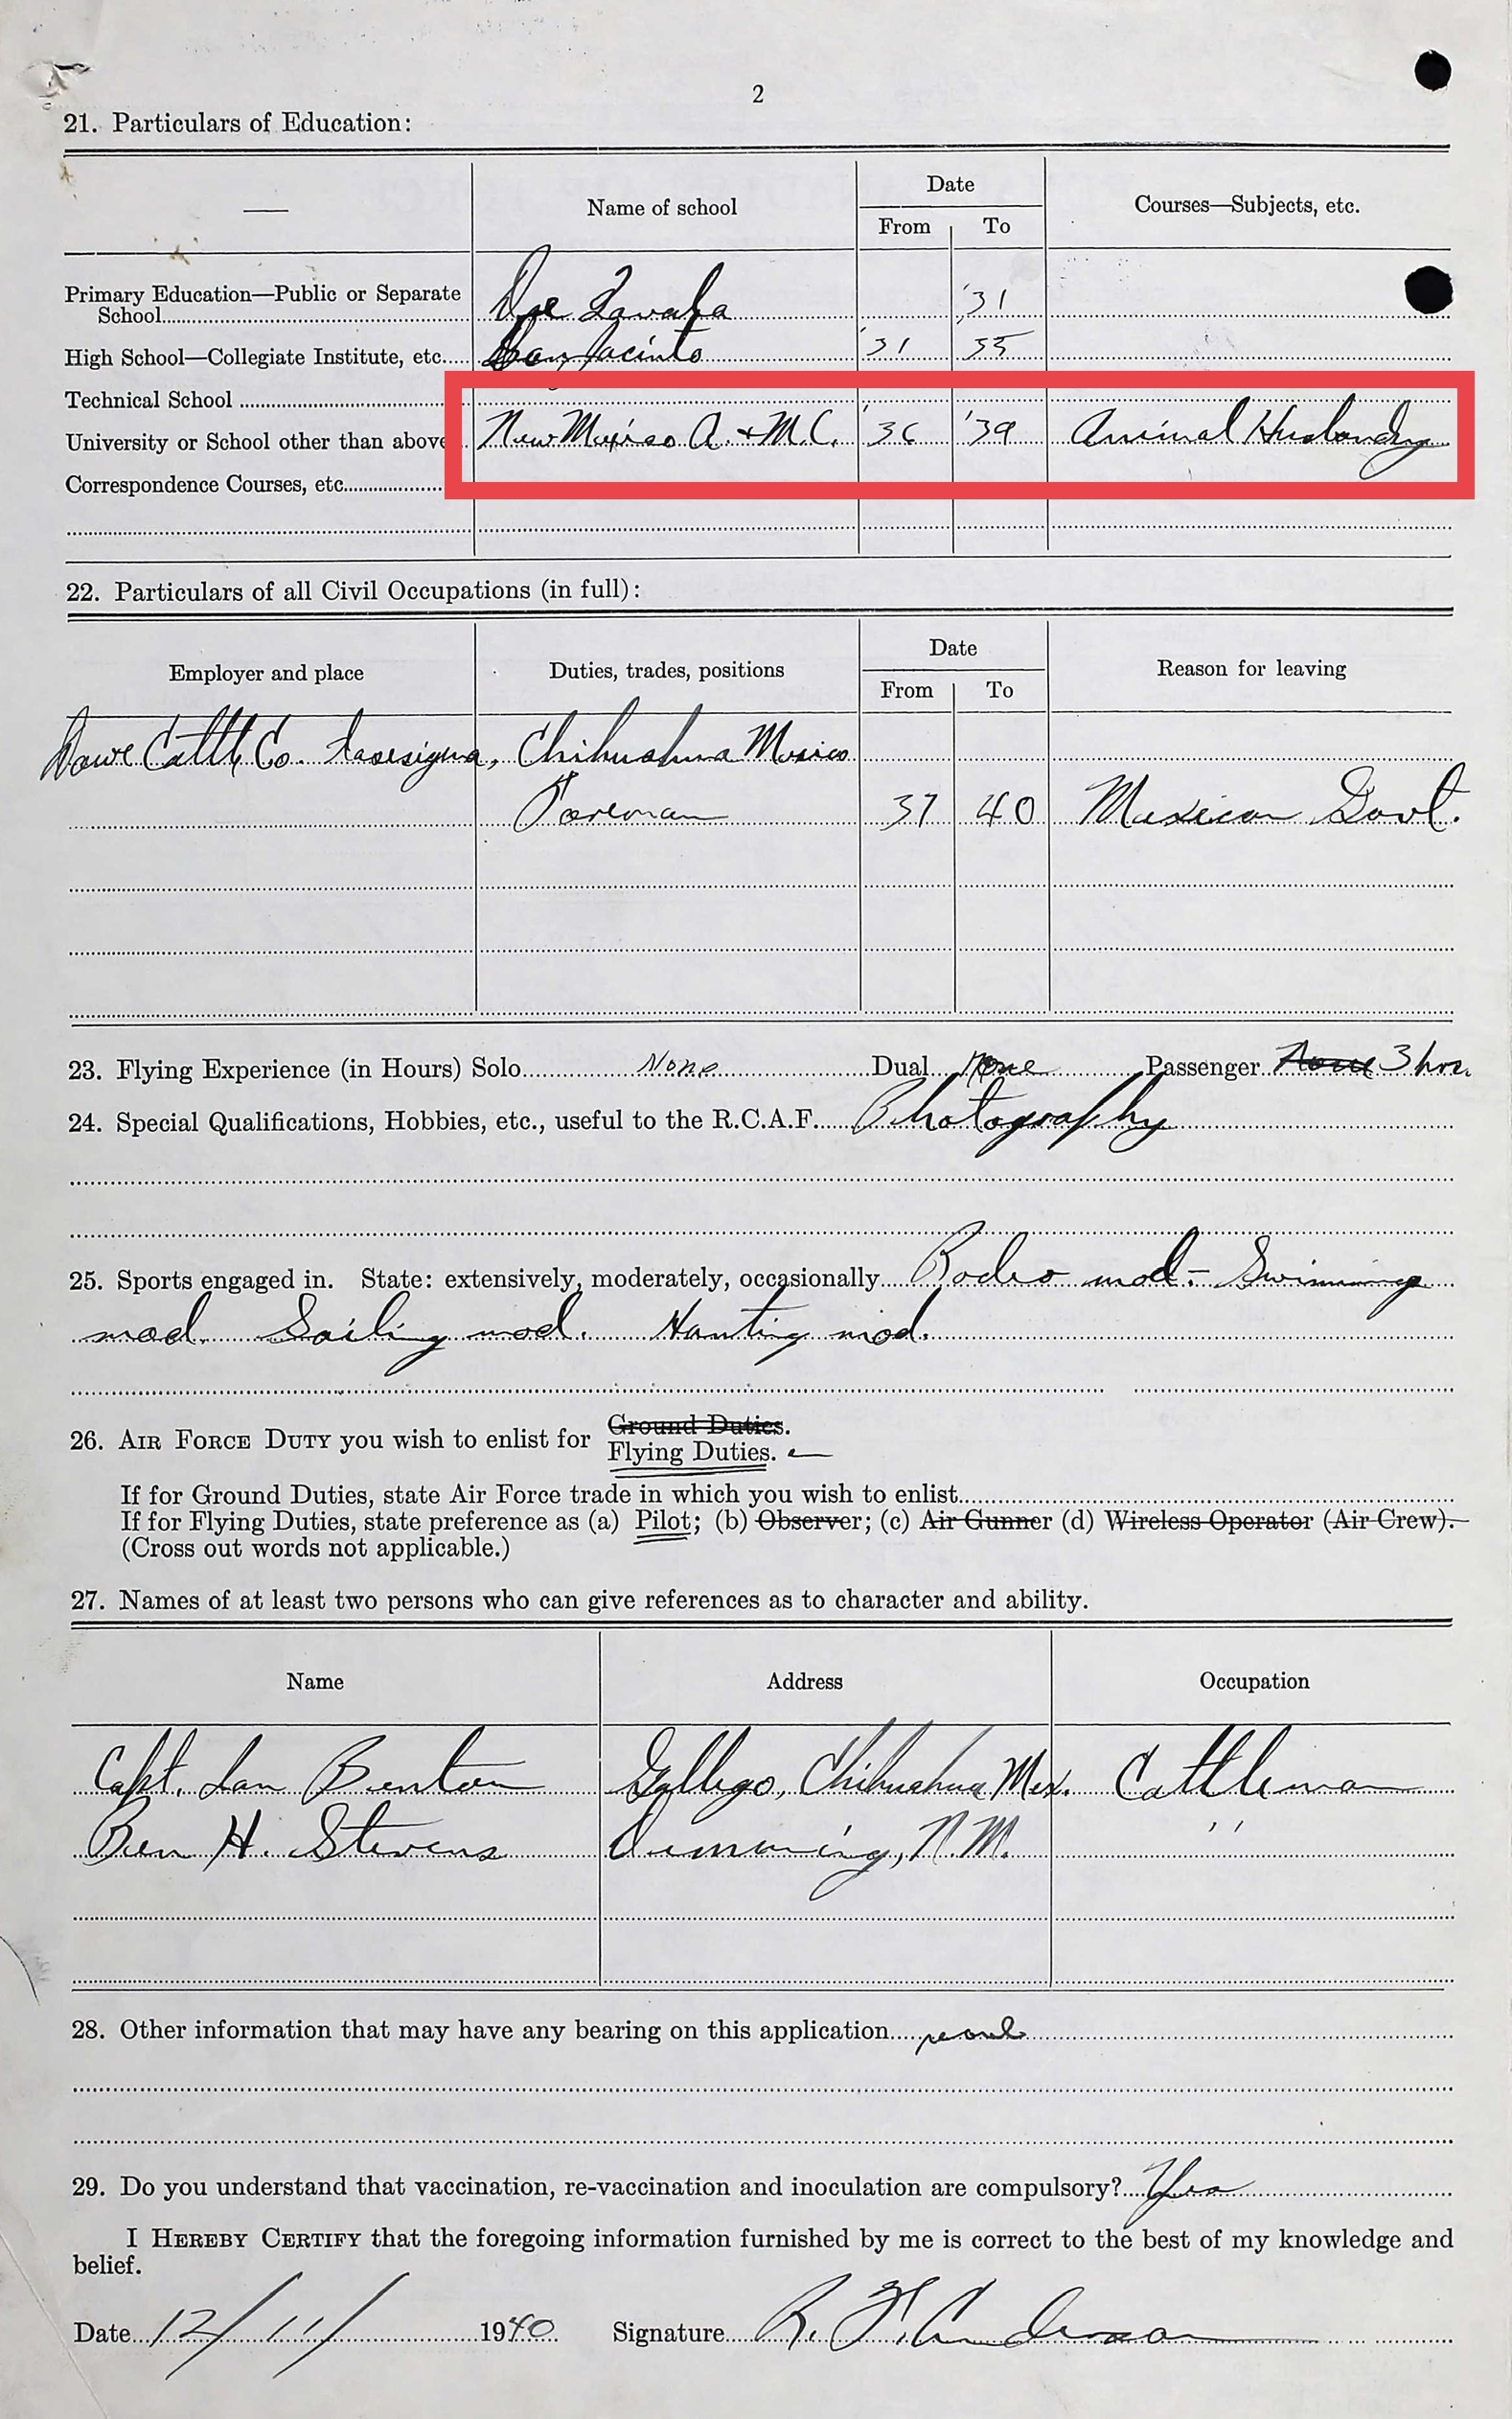 2
21. Particulars of Education:
— Name of school Date Courses—Subjects, etc.
From To
Primary Education—Public or Separate
School De Zavala '31
High School—Collegiate Institute, etc. San Jacinto '31 35
Technical School
University or School other than above New Mexico A. & M.C. '36 '39 Animal Husbandry
Correspondence Courses, etc.
22. Particulars of all Civil Occupations (in full):
Employer and place Duties, trades, positions Date Reason for leaving
From To
Cattle Co. Chihuahua Mexico
Foreman 37 40 Mexican Govt.
23. Flying Experience (in Hours) Solo None Dual None Passenger None 3 hrs.
24. Special Qualifications, Hobbies, etc., useful to the R.C.A.F. Photography
25. Sports engaged in. State: extensively, moderately, occasionally Rodeo mod - Swimming
mod. Sailing mod. Hunting mod.
26. AIR FORCE DUTY you wish to enlist for Ground Duties.
Flying Duties.
If for Ground Duties, state Air Force trade in which you wish to enlist
If for Flying Duties, state preference as (a) Pilot; (b) Observer; (c) Air Gunner (d) Wireless Operator (Air Crew).
(Cross out words not applicable.)
27. Names of at least two persons who can give references as to character and ability.
Name Address Occupation
Capt. Ian Benton Gallego, Chihuahua Mex. Cattleman
Ben H. Stevens Demming, N.M. ''
28. Other information that may have any bearing on this application
29. Do you understand that vaccination, re-vaccination and inoculation are compulsory? Yes
I HEREBY CERTIFY that the foregoing information furnished by me is correct to the best of my knowledge and
belief.
Date 12/11/ 1940 Signature R. F. Anderson